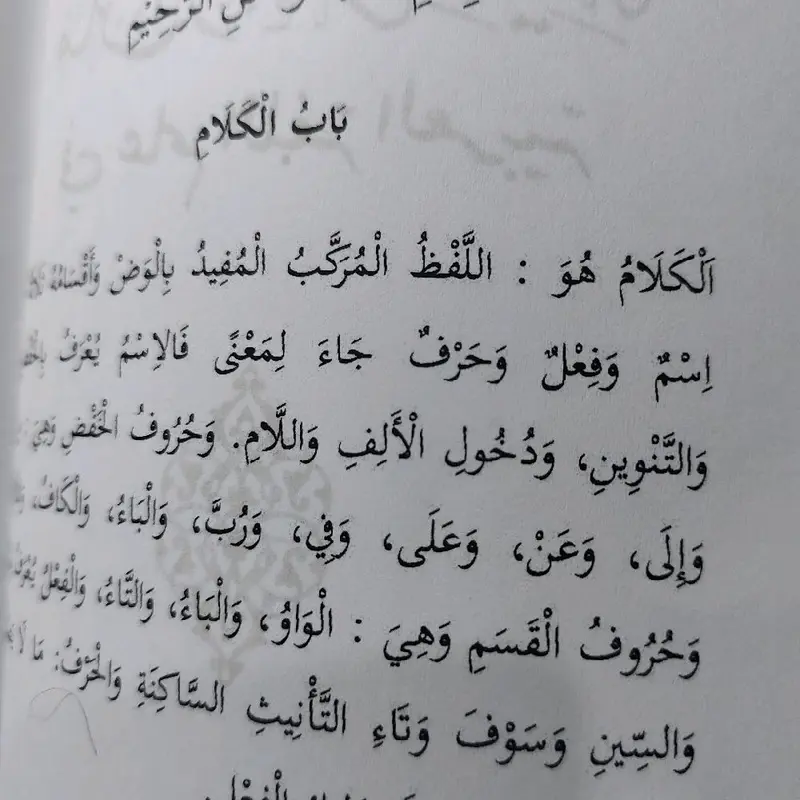 الرَّحِيْمِ
بَابُ الْكَلَامِ
اَلْكَلَامُ هُوَ : اللَّفْظُ الْمُرَكَّبُ الْمُفِيدُ بِالْوَضْ وَأَقْسَامُهُ
اِسْمٌ وَفِعْلٌ وَحَرْفٌ جَاءَ لِمَعْنًى فَالِاسْمُ يُعْرَفُ
وَالتَّنْوِينِ، وَدُخُولِ الْأَلِفِ وَاللَّامِ. وَحُرُوفُ الْخَفْضِ وَهِيَ
وَإِلَى، وَعَنْ، وَعَلَى، وَفِي، وَرُبَّ، وَالْبَاءُ، وَالْكَافُ،
وَحُرُوفُ الْقَسَمِ وَهِيَ : الْوَاوُ، وَالْبَاءُ، وَالتَّاءُ، وَالْفِعْلُ يُعْرَفُ
وَالسِّينِ وَسَوْفَ وَتَاءِ التَّأْنِيثِ السَّاكِنَةِ وَالْحَرْفُ: مَا لَا